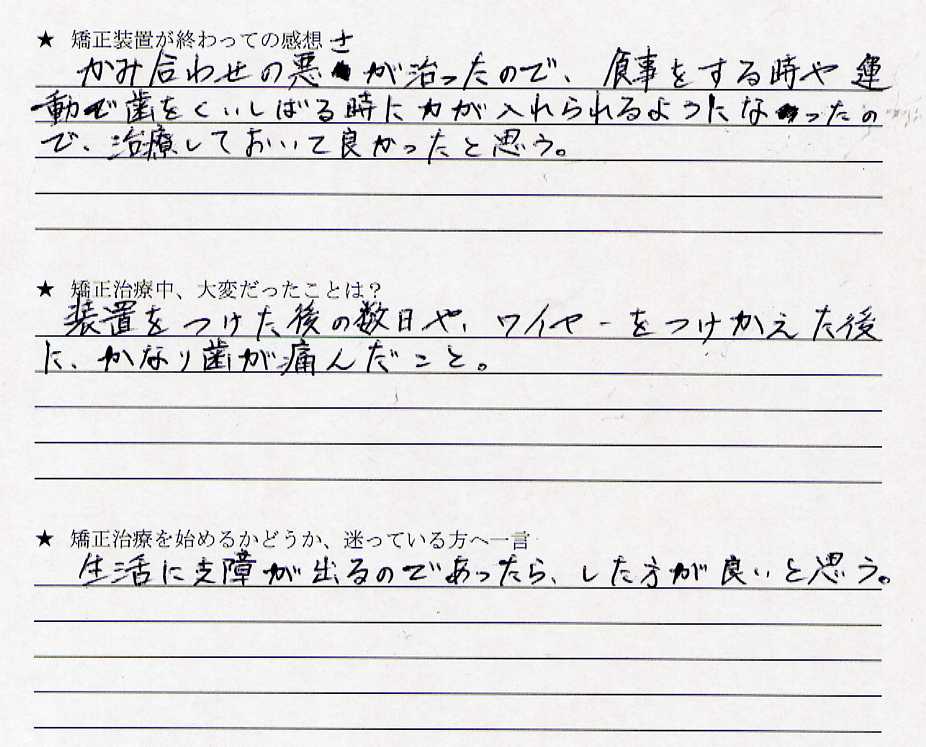 ★ 矯正装置が終わっての感想
かみ合わせの悪さが治ったので、食事をする時や運
動で歯をくいしばる時に力が入れられるようになったの
で、治療しておいて良かったと思う。
★ 矯正治療中、大変だったことは?
装置をつけた後の数日や、ワイヤーをつけかえた後
に、かなり歯が痛んだこと。
★ 矯正治療を始めるかどうか、迷っている方へ一言
生活に支障が出るのであったら、した方が良いと思う。